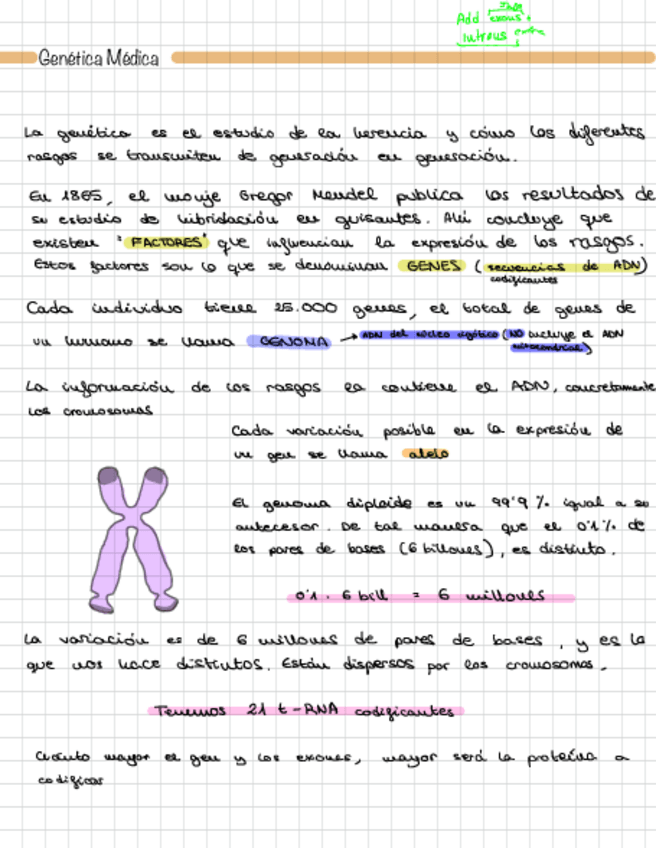 Add exous +
Introus
Genética Médica
La genética es el estudio de la herencia y cómo los diferentes
rasgos se transmiten de generación en generación.
En 1865, el monje Gregor Mendel publica los resultados de
su estudio de hibridación en guisantes. Ahí concluye que
existen "FACTORES" que influencian la expresión de los rasgos.
Estos factores son lo que se denominan GENES (secuencias de ADN)
codificantes
Cada individuo tiene 25.000 genes, el total de genes de
un humano se llama GENOMA → ADN del núcleo cigótico (NO incluye el ADN
mitocondrial)
La información de los rasgos la contiene el ADN, concretamente
los cromosomas
Cada variación posible en la expresión de
un gen se llama alelo
El genoma diploide es un 99'9 % igual a su
antecesor. De tal manera que el 0'1 % de
los pares de bases (6 billones), es distinto.
0'1 . 6 bill = 6 millones
La variación es de 6 millones de pares de bases, y es lo
que nos hace distintos. Están dispersos por los cromosomas.
Tenemos 21 t-RNA codificantes
Cuánto mayor el gen y los exones, mayor será la proteína a
codificar